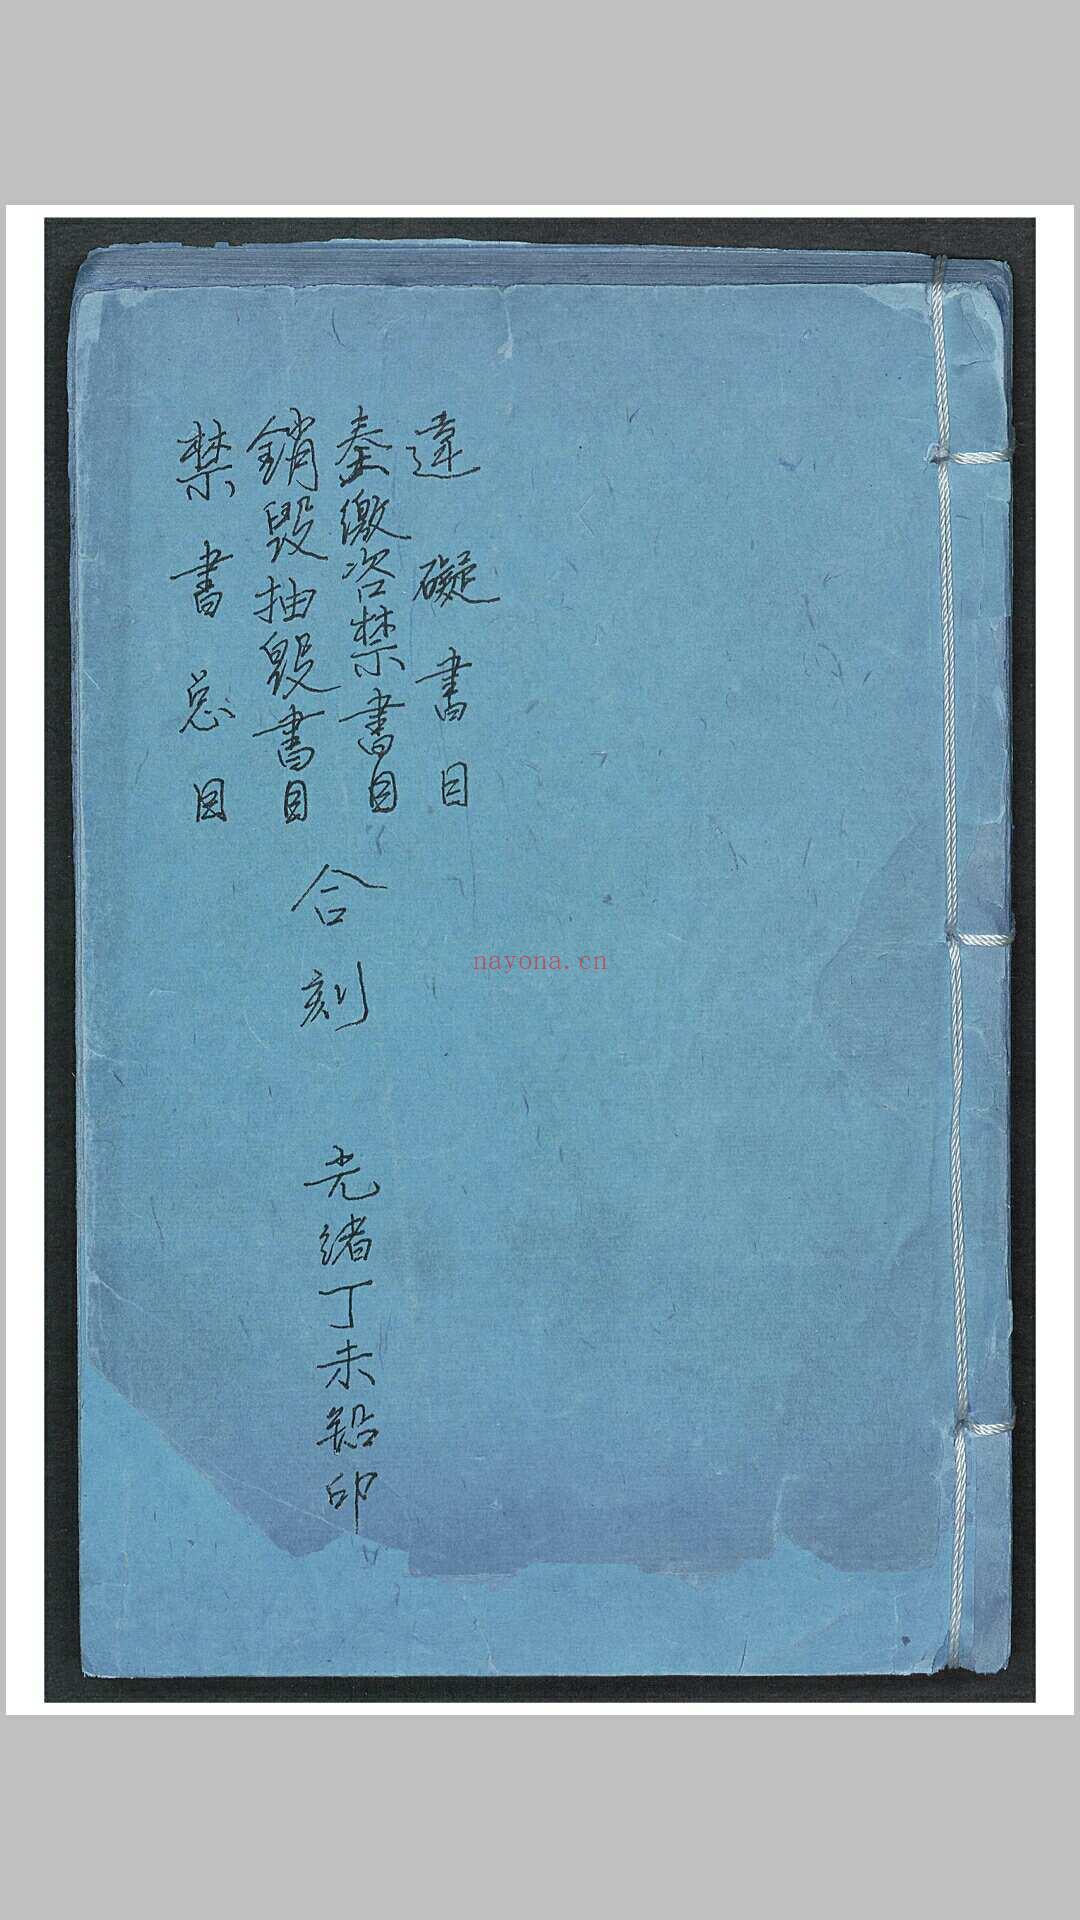 違礙書目
奏繳咨禁書目
銷毁抽毁書目
禁書总目
合刻
光绪丁未鉛印
nayona.cn